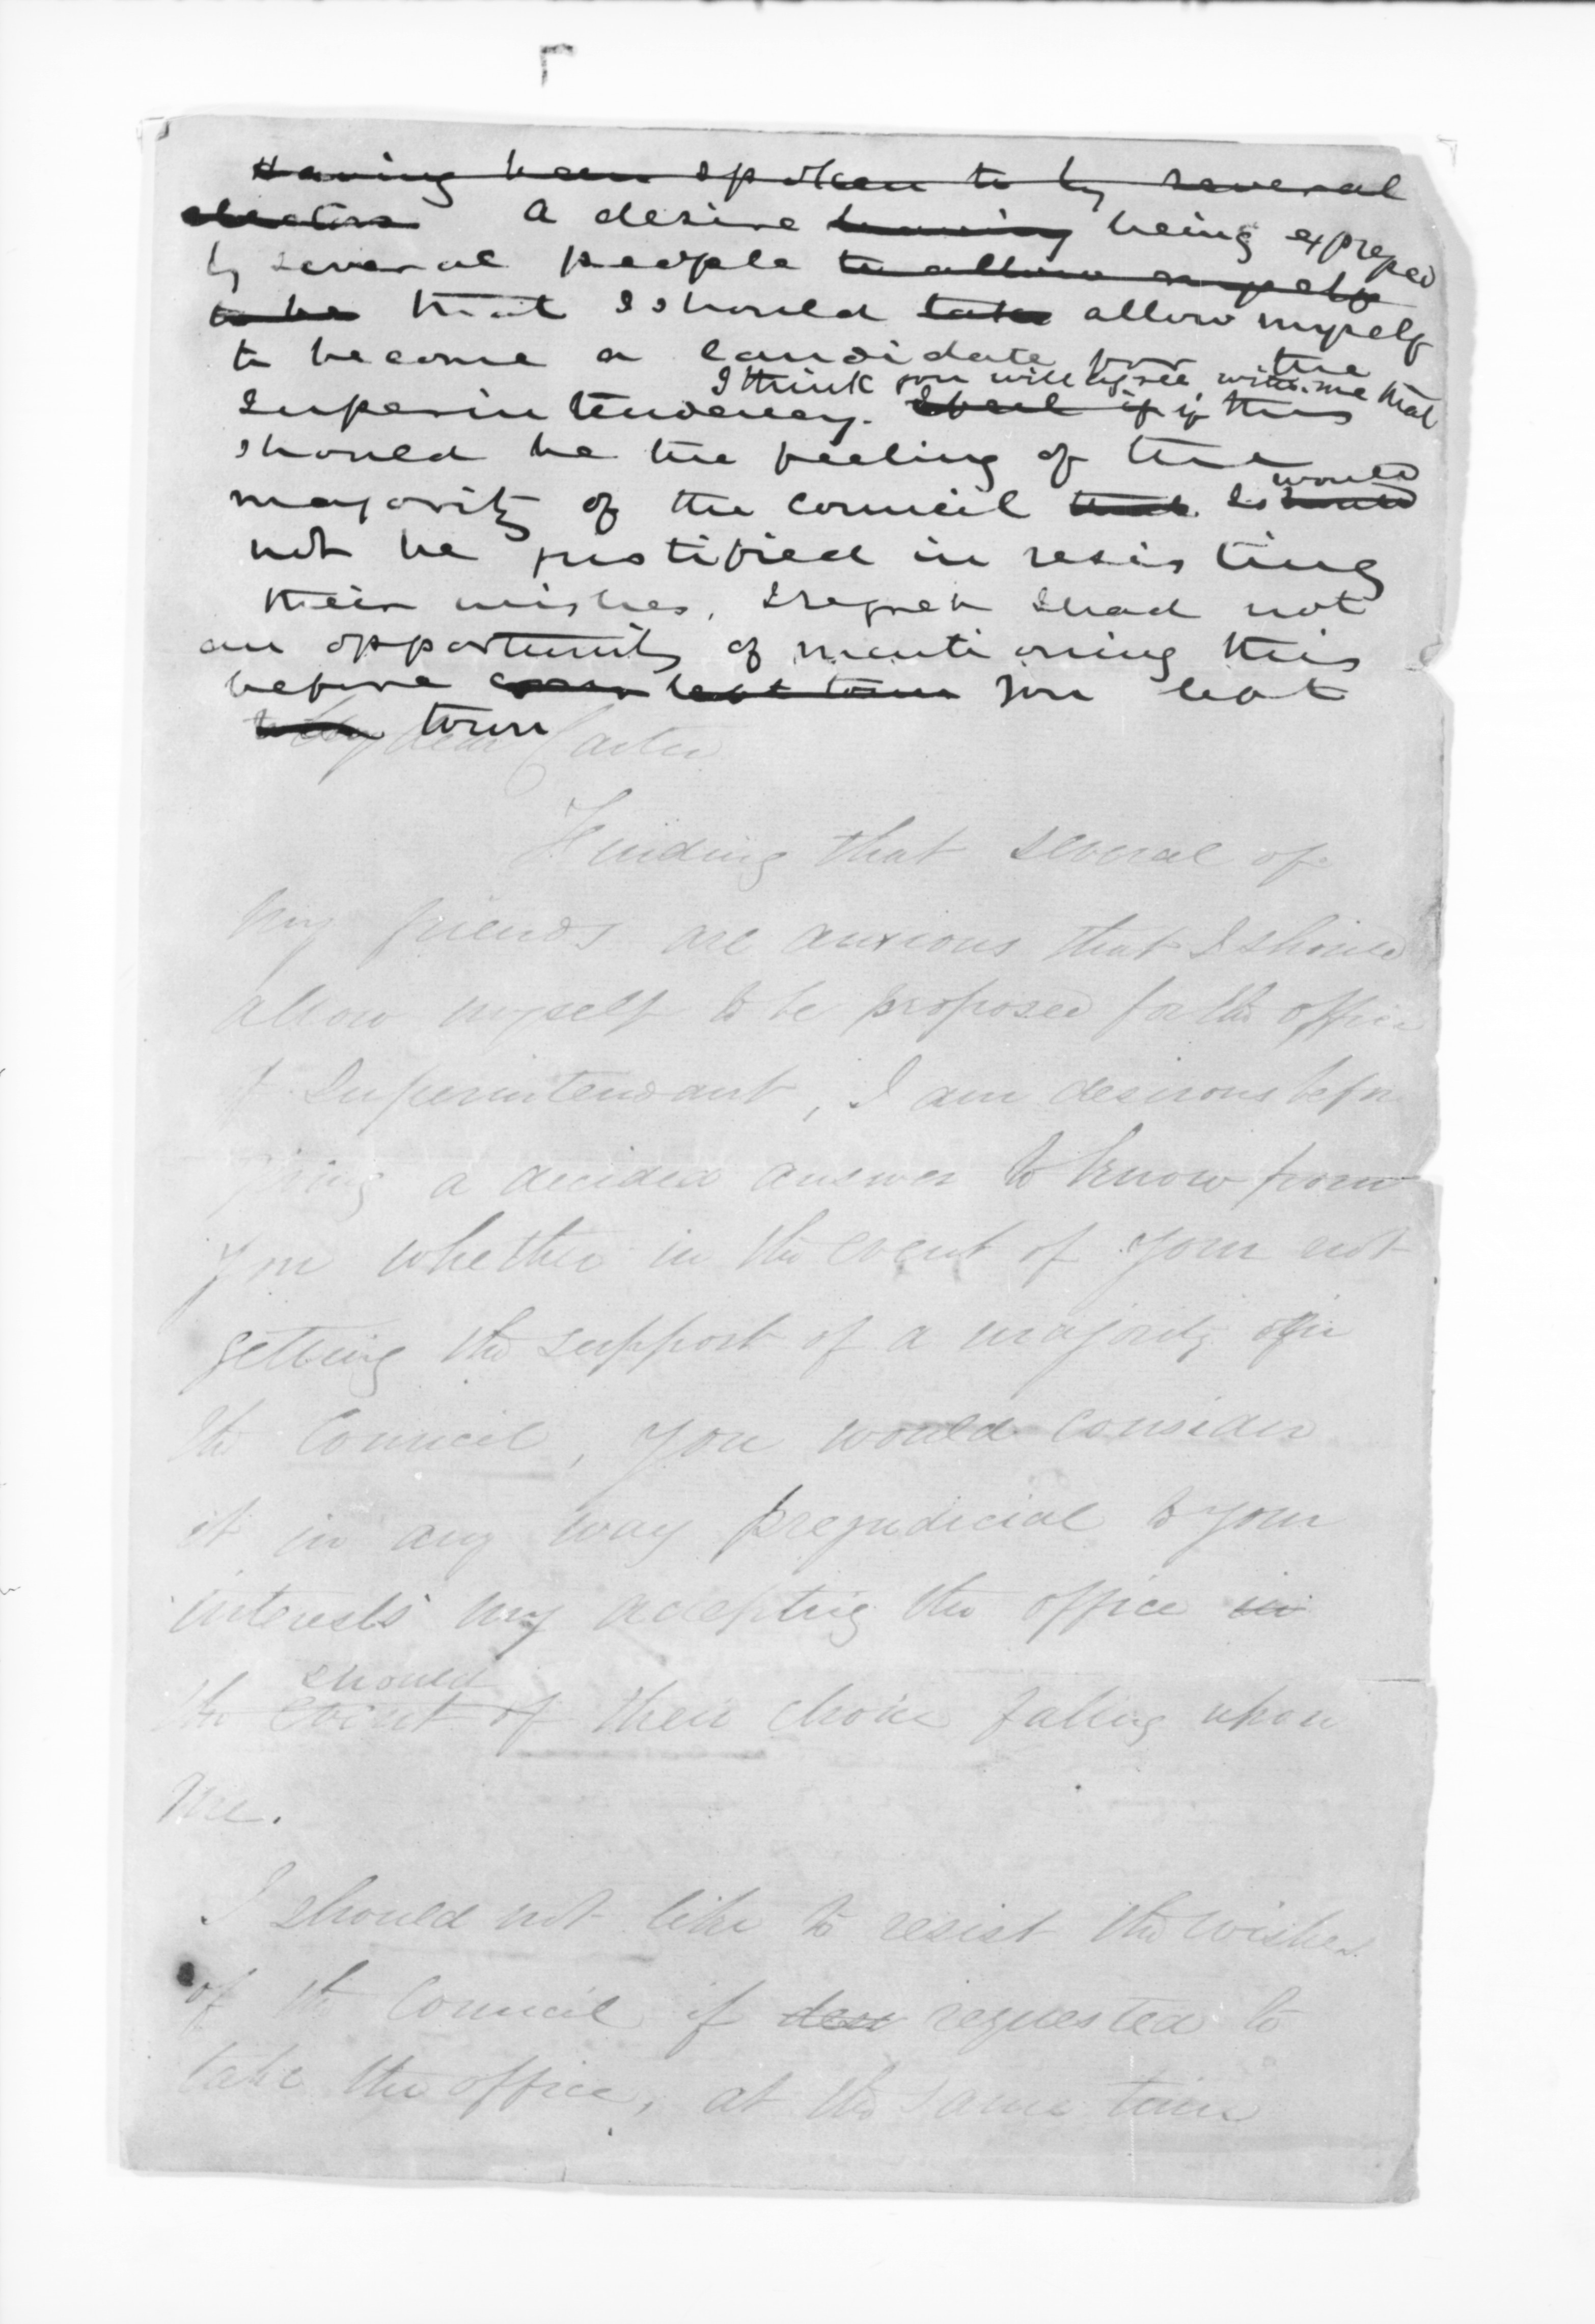 Having been spoken to by several
electors A desire having being expressed
by several people to allow myself
to be that I should take allow myself
to become a candidate for the
I think you will agree with me that
Superintendency. I feel if if this
should be the feeling of the
would
majority of the council that I should
not be justified in resisting
their wishes, I regret I had not
an opportunity of mentioning this
before left town you left
town
My dear Carter
Finding that several of
my friends are anxious that I should
allow myself to be proposed for the office
of Superintendant, I am desirous before
giving a decided answer to know from
you whether in the event of your not
getting the support of a majority in
the Council, you would consider
it in any way prejudicial to your
interests my accepting the office in
should
the event of their choice falling upon
me.
I should not like to resist the wishes
of the Council if requested to
take the office, at the same time